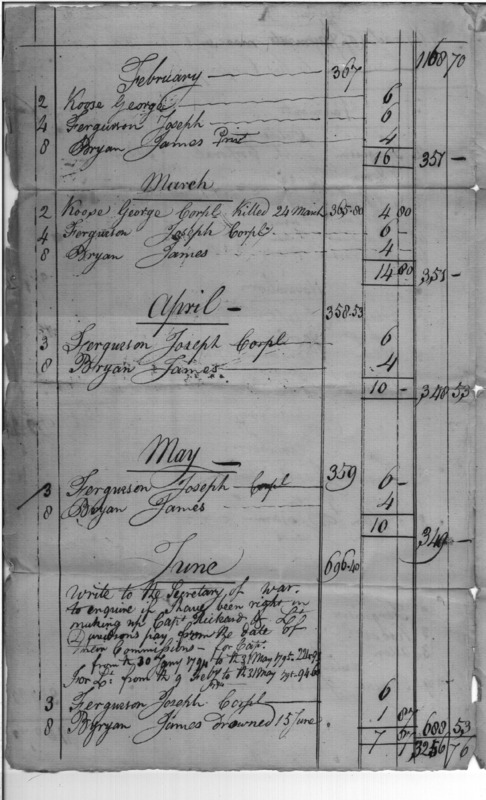 1168 70
February 367
2 Koose George 6
4 Ferguson Joseph 6
8 Bryan James Prit 4
16 351 —
March
2 Koose George Corpl Killed 24 March 365-80 4 80
4 Ferguson Joseph Corpl 6 —
8 Bryan James 4 —
14 80 351 —
April — 358.53
3 Ferguson Joseph Corpl 6
8 Bryan James 4
10 — 348 53
May — 359
3 Ferguson Joseph Corpl 6 —
8 Bryan James 4
10 349 —
June 696.40
Write to the Secretary of War.
to enquire if I have been right in
making up Capt Rickard & Lt
pay from the date of
Them Commissions — for Capt.
from the 30 Jany 1794 to the 31 May 1795.
for Lt from the 9 Feby to the 31 May
3 Ferguson Joseph Corpl 6
8 Bryan James Drowned 15 June. 1 87
7 87 688 53
1 3256 76